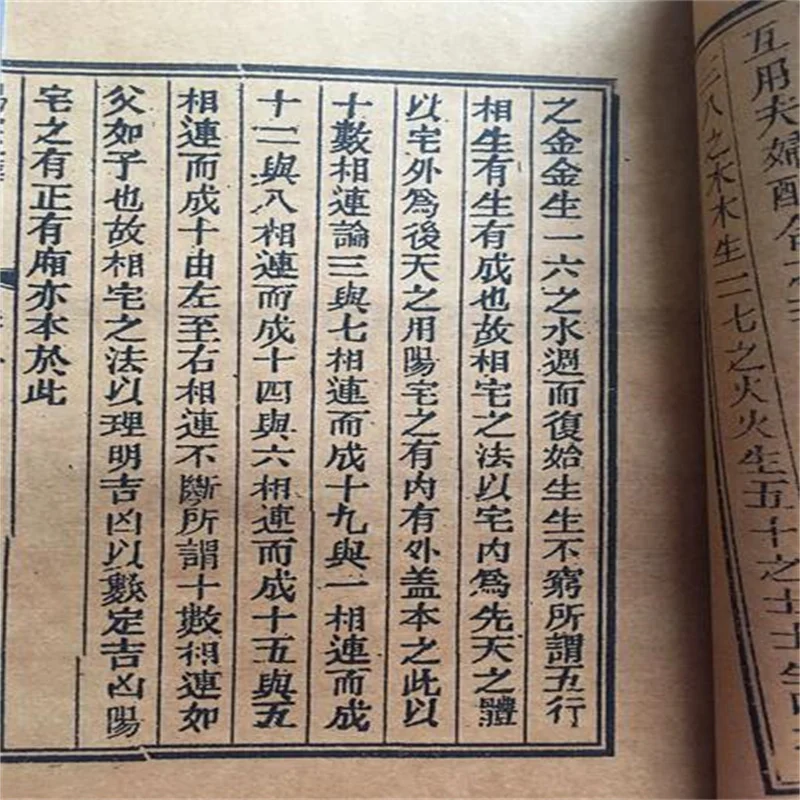 互用夫婦配合
三八之木木生二七之火火生五十之土土生
之金金生一六之水週而復始生生不窮所謂五行
相生有生有成也故相宅之法以宅内為先天之體
以宅外為後天之用陽宅之有内有外盖本之此以
十數相連論三與七相連而成十九與一相連而成
十二與八相連而成十四與六相連而成十五與五
相連而成十由左至右相連不斷所謂十數相連如
父如子也故相宅之法以理明吉凶以數定吉凶陽
宅之有正有廂亦本於此